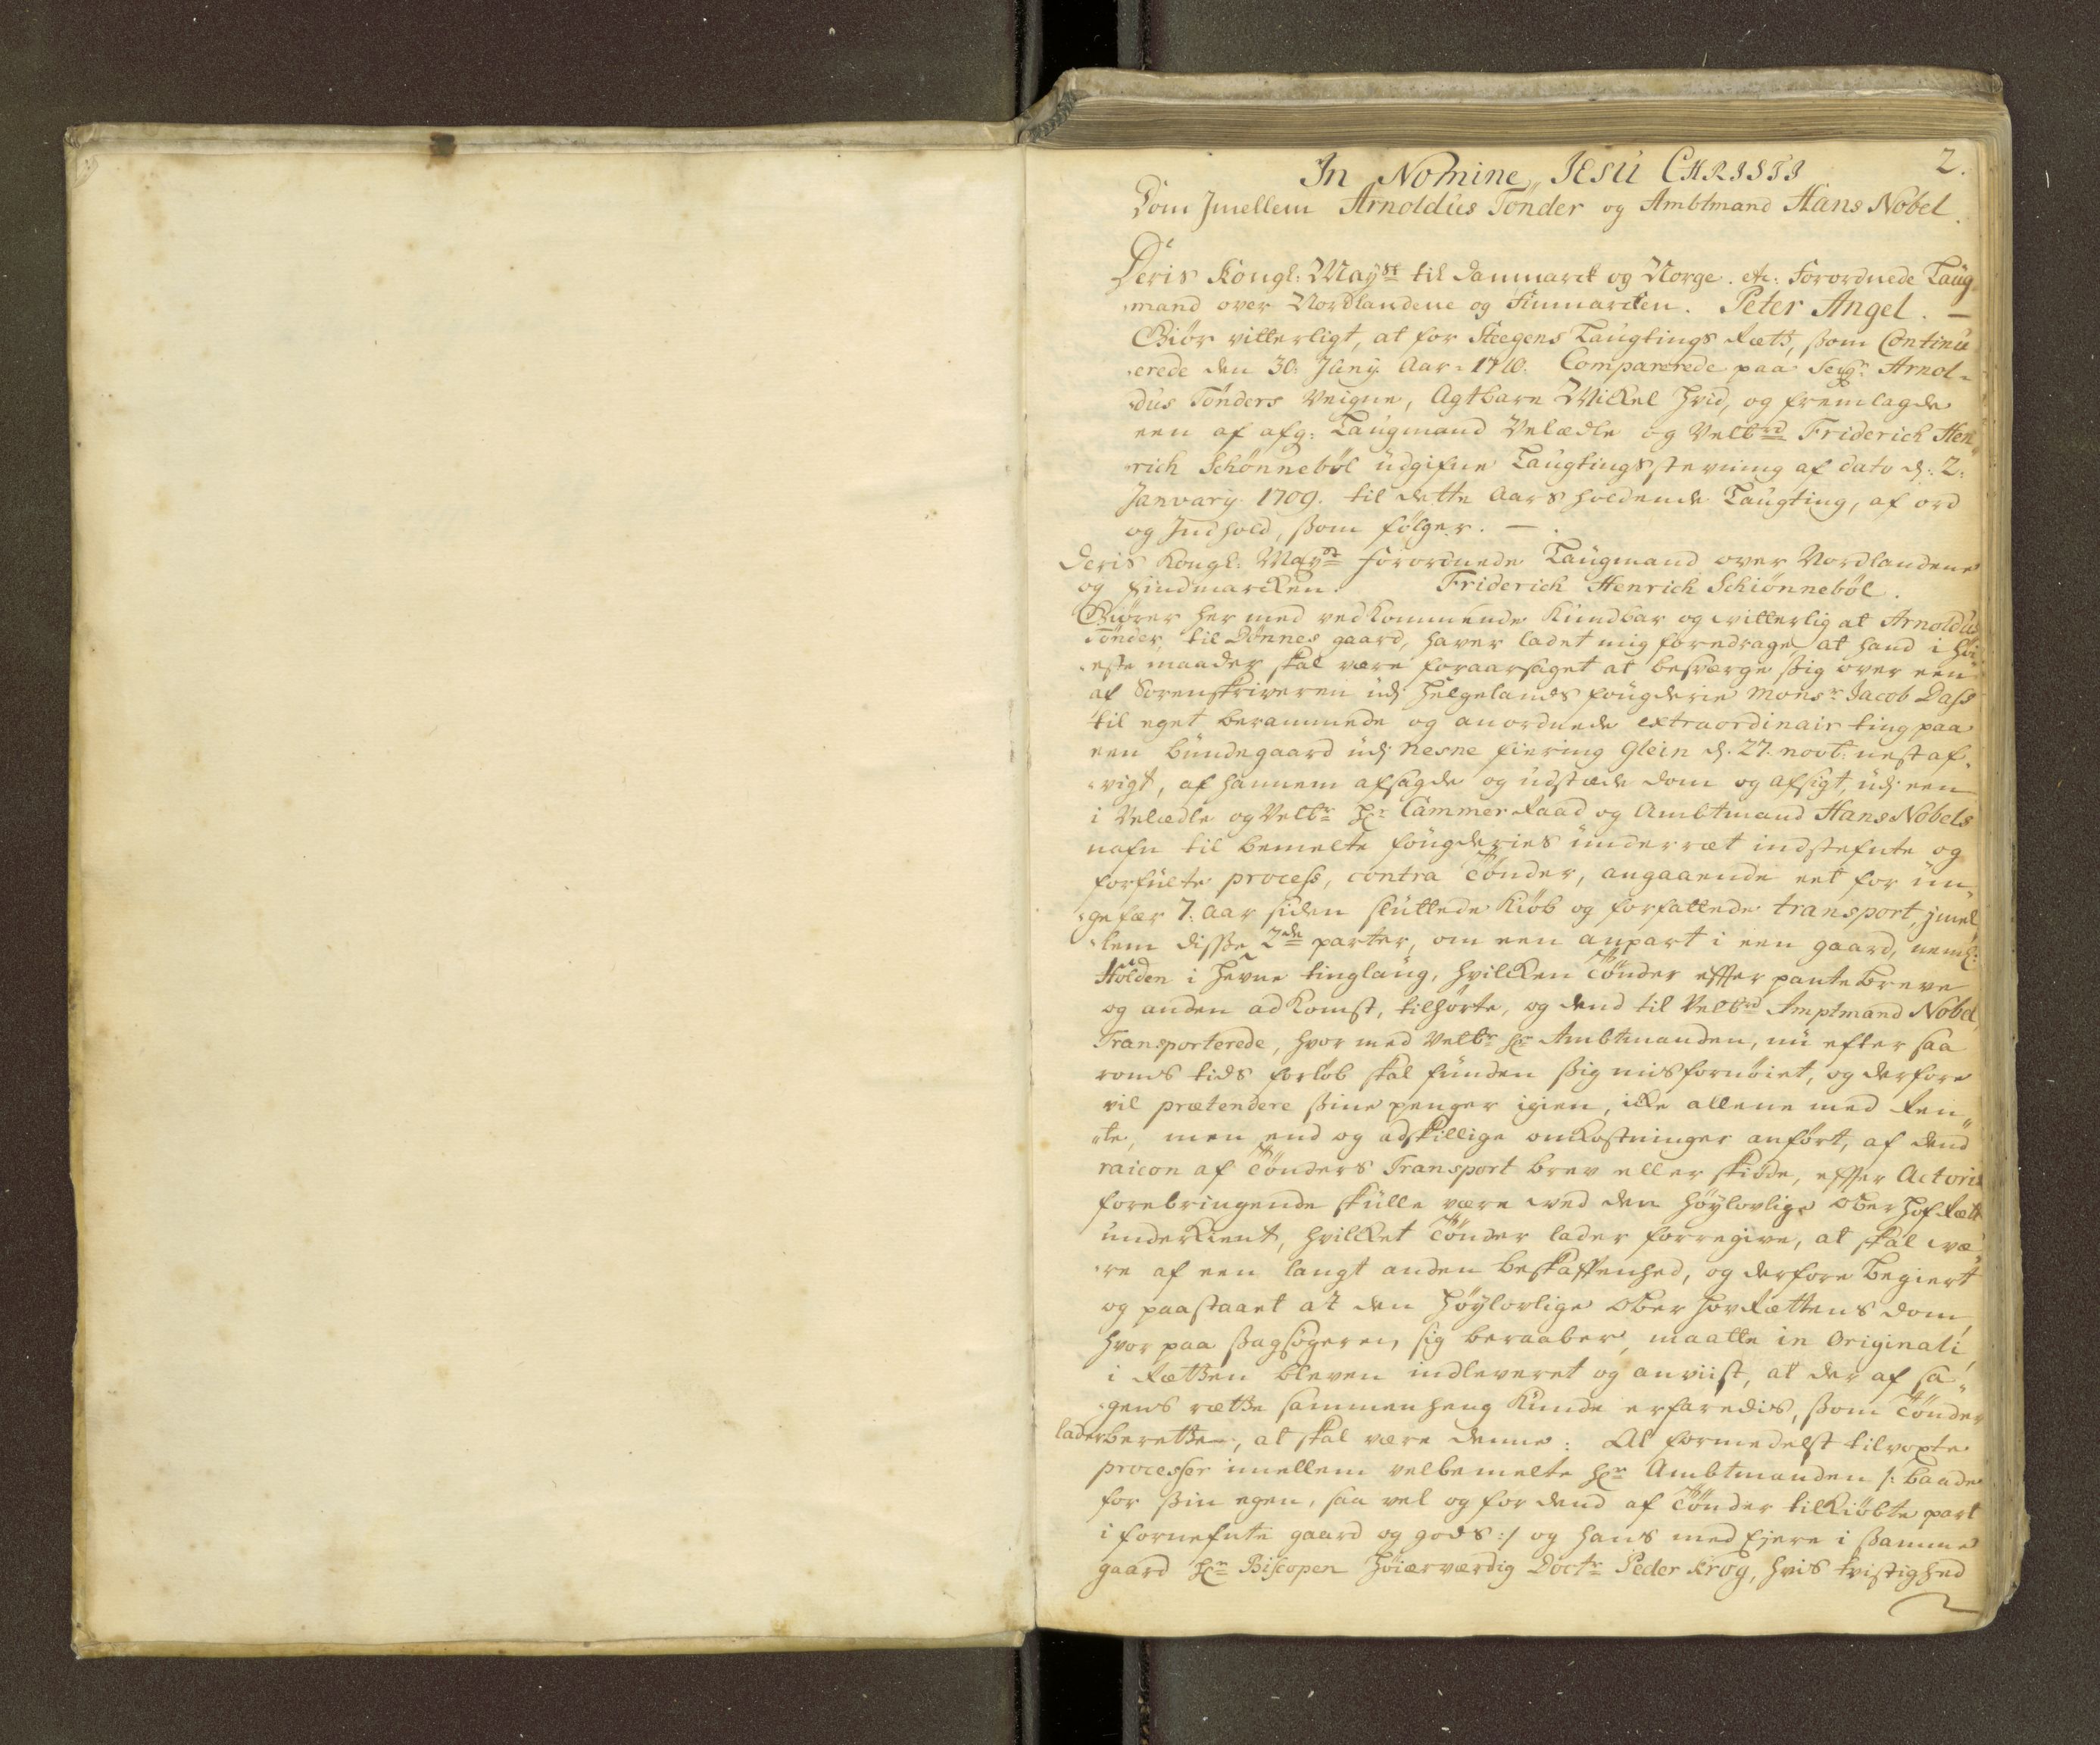 2.
In Nomine JESU CHRISTI
Dom Jmellem Arnoldus Tönder og Ambtmand Hans Nobel.
Deris Kongl: Mayst til Danmarck og Norge. etc. Forordnede Laug
mand over Nordlandene og Finmarcken. Peter Angel. —
Giör vitterligt, at for Steegens Laugtings Rætt, som Continu
erede den 30. Juny. Aar. 1710. Comparerede paa Seigr Arnol-
dus Tönders Veigne, Agtbare Mickel Hvid, og fremlagde
een af afg: Laugmand Velædle og Velbrd Friderich Hen
rich Schönneböl udgifne Laugtings stevning af dato d: 2.
January. 1709. til dette Aars holdende Laugting, af ord
og Indhold, som fölger. —.
Deris Kongl: Mayst forordnede Laugmand over Nordlandene
og findmarcken. Friderich Henrich Schiönneböl.
Giörer her med vedkommende Kundbar og vitterlig at Arnoldus
Tönder, til Dönnes gaard, haver ladet mig foredrage, at hand i höi
este maader skal være foraarsaget at besværge sig over een
af Sorenskriveren udj Helgelands fougderie Monsr Jacob Dass
til eget berammede og anordnede extraordinair ting paa
een bundegaard udj Nesne fiering Glein d. 27. novb: nest af
vigt, af hannem afsagde og udstæde dom og afsigt, udj een
i Velædle og Velbr Hr Cammer Raad og Ambtmand Hans Nobels
nafn til bemelte fougderies underræt indstefnte og
forfulte process, contra Tönder, angaaende eet for un
gefær 7. Aar siden sluttede Kiöb og forfattede transport, jmel
lem disse 2de parter, om een anpart i een gaard, neml:
Holden i Hevne tinglaug, hvilcken Tönder efter pantebreve
og anden adkomst, tilhörte, og dend til Velbrd Amptmand Nobel,
Transporterede, hvor med Velbr Hr Ambtmanden, nu efter saa
rom tids forlöb skal funden sig misfornöiet, og derfore
vil prætendere sine penger igien, icke allene med Ren
te, men end og adskillige omkostninger anfört, af dend
raicon af Tönders Transport brev eller skiöde, efter Actoris
forebringende skulle være ved den höylovlige Ober hof Rætt
underkient, hvilcket Tönder lader forregive, at skal væ
re af een langt anden beskaffenhed, og derfore begiert
og paastaaet at den höylovlige Ober hov Rættens dom,
hvor paa sagsögeren, sig beraaber, maatte in Originali,
i Rætten bleven indleveret og anviist, at der af sa
gens rætte sammenheng kunde erfaredis, som Tönder
lader berette, at skal være denne: At formedelst tilvoxte
processer imellem velbemelte Hr Ambtmanden /: baade
for sin egen, saa vel og for dend af Tönder tilkiöbte part
i fornefnte gaard og gods :/ og hans med Ejere i samme
gaard Hr Biscopen Höiærværdig Doctr Peder Krog, hvis tvistighed